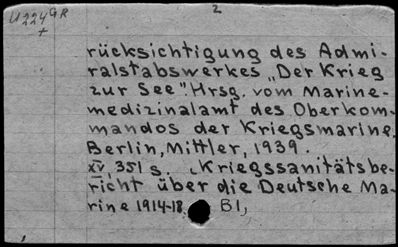 U 224 GR
+
2
rücksichtigung des Admi-
ralstabswerkes „Der Krieg
zur See". Hrsg. vom Marine-
medizinalamt des Oberkom-
mandos der Kriegsmarine.
Berlin, Mittler, 1939.
XV, 351 S. (Kriegssanitätsbe-
richt über die Deutsche Ma-
rine 1914-18. B1,